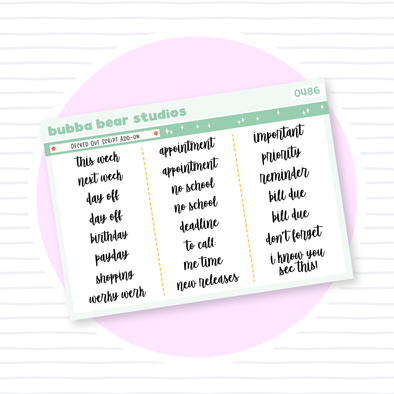 bubba bear studios
0486
Decked Out Script Add-on
this week
next week
day off
day off
birthday
payday
shopping
werky werk
appointment
appointment
no school
no school
deadline
to call:
me time
new releases
important
priority
reminder
bill due
bill due
don't forget
i know you
see this!